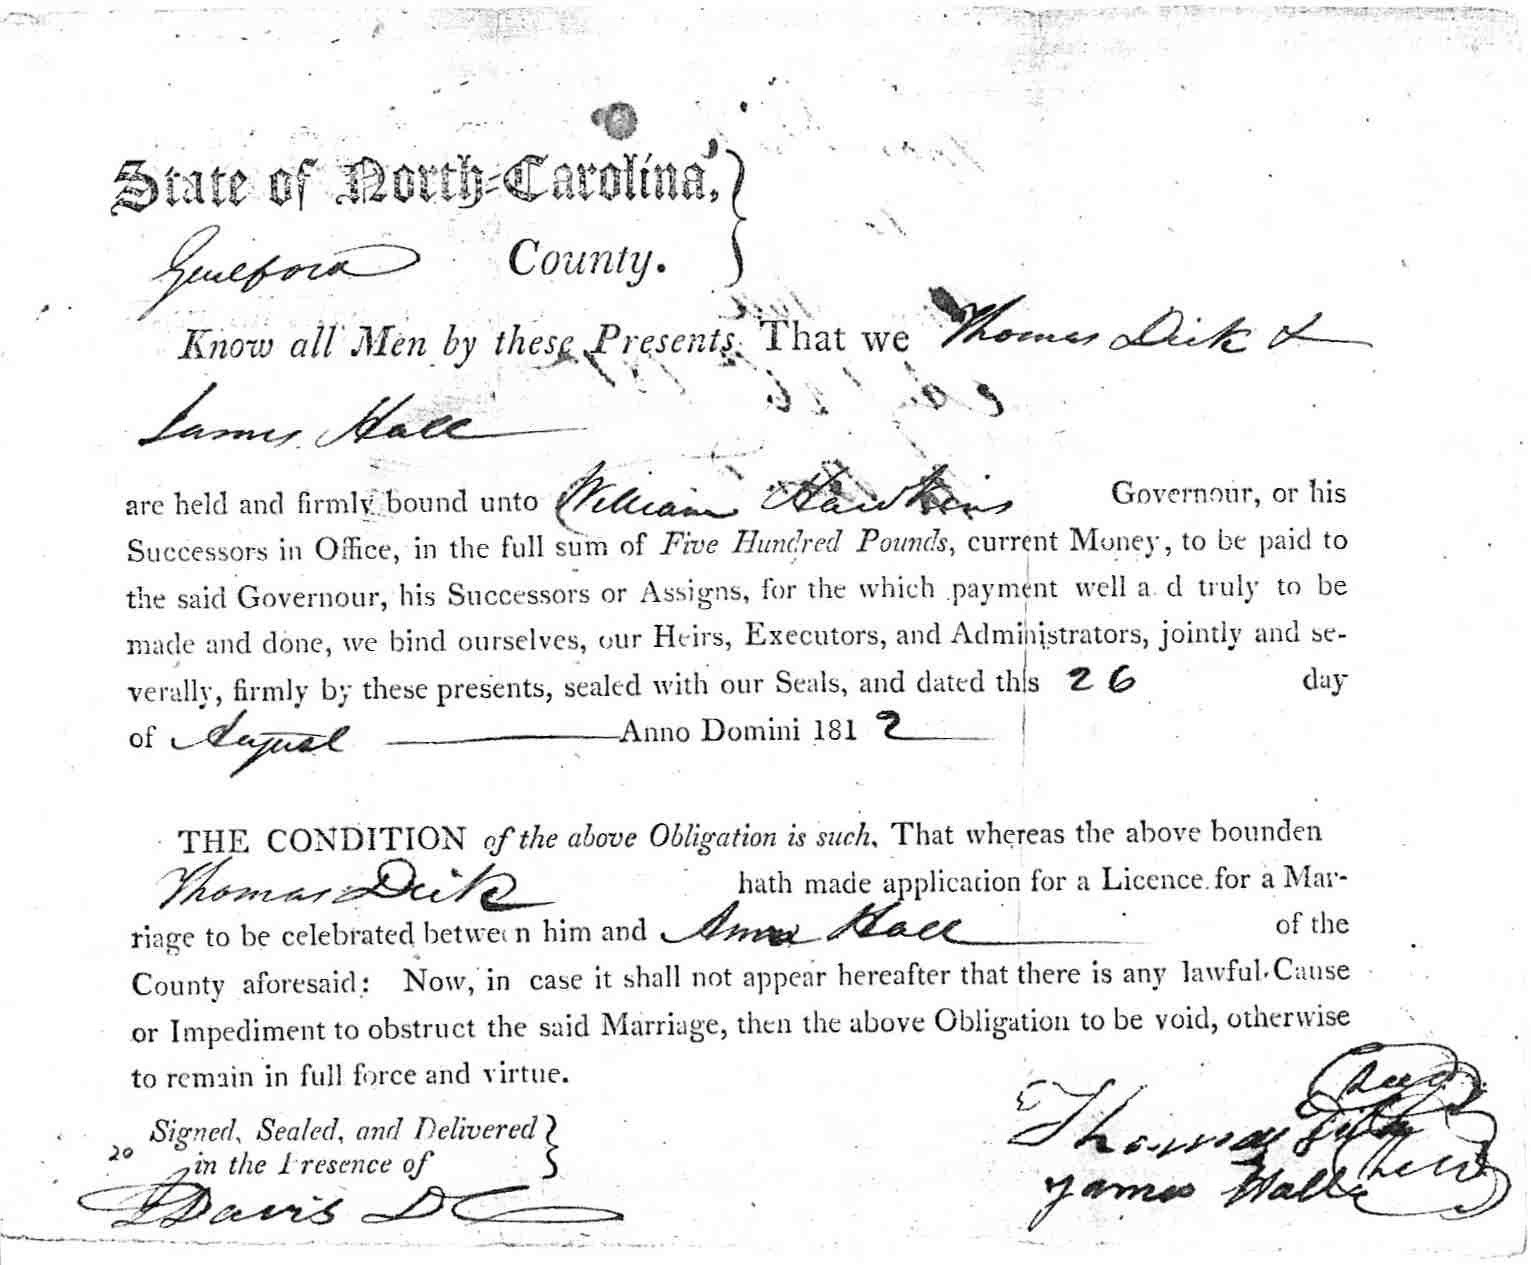 State of North-Carolina,
Guilford County.
Know all Men by these Presents, That we Thomas Dick &
James Hall
are held and firmly bound unto William Hawkins Governour, or his
Successors in Office, in the full sum of Five Hundred Pounds, current Money, to be paid to
the said Governour, his Successors or Assigns, for the which payment well a d truly to be
made and done, we bind ourselves, our Heirs, Executors, and Administrators, jointly and se-
verally, firmly by these presents, sealed with our Seals, and dated this 26 day
of August Anno Domini 1812
THE CONDITION of the above Obligation is such, That whereas the above bounden
Thomas Dick hath made application for a Licence for a Mar-
riage to be celebrated between him and Anna Hall of the
County aforesaid: Now, in case it shall not appear hereafter that there is any lawful Cause
or Impediment to obstruct the said Marriage, then the above Obligation to be void, otherwise
to remain in full force and virtue.
Signed, Sealed, and Delivered
20 in the Presence of
Davis D C
Thomas Dick seal
James Hall seal